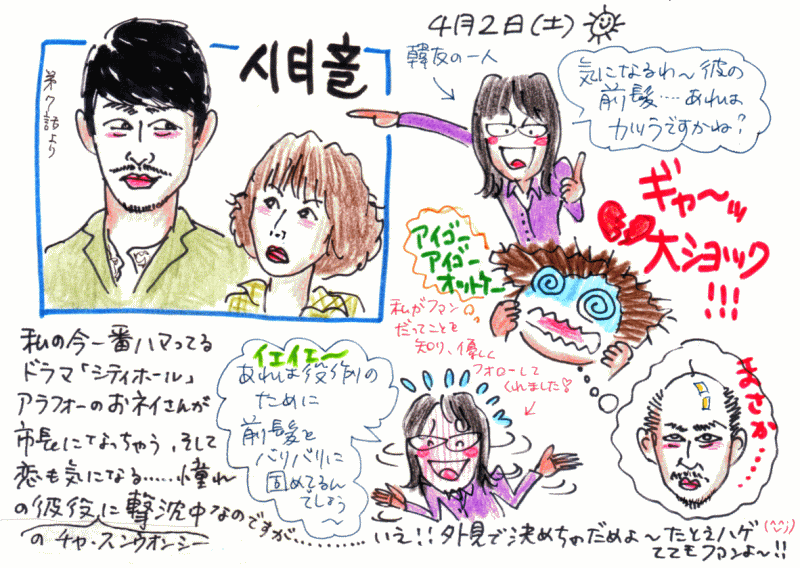 4月2日(土)
시티홀
第7話より
韓友の一人
気になるわ〜彼の
前髪‥‥あれは
カツラですかね?
ギャ〜ッ
大ショック
!!!
アイゴー
アイゴー
オットケー
私がファン
だってことを
知り、優しく
フォローして
くれました♡
まさか‥‥‥
イエイエ〜
あれは役作りの
ために
前髪を
バリバリに
固めてるん
でしょう
〜
私の今一番ハマってる
ドラマ「シティホール」
アラフォーのおネイさんが
市長になっちゃう、そして
恋も気になる‥‥‥憧れ
の彼役に撃沈中なのですが‥‥‥‥‥
のチャ・スンウォンシー
いえ!!外見で決めちゃだめよ〜たとえハゲ
てても ファンよ〜!!
(^^;)